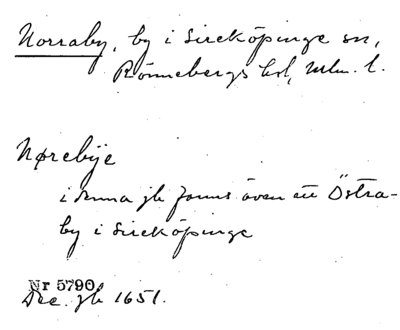 Norraby, by i Sireköpinge sn,
Rönnebergs hd, Mlm. l.
Nørebÿe
i denna jb finns även ett Östra-
by i Sireköpinge
Nr 5790.
Dec. jb 1651.